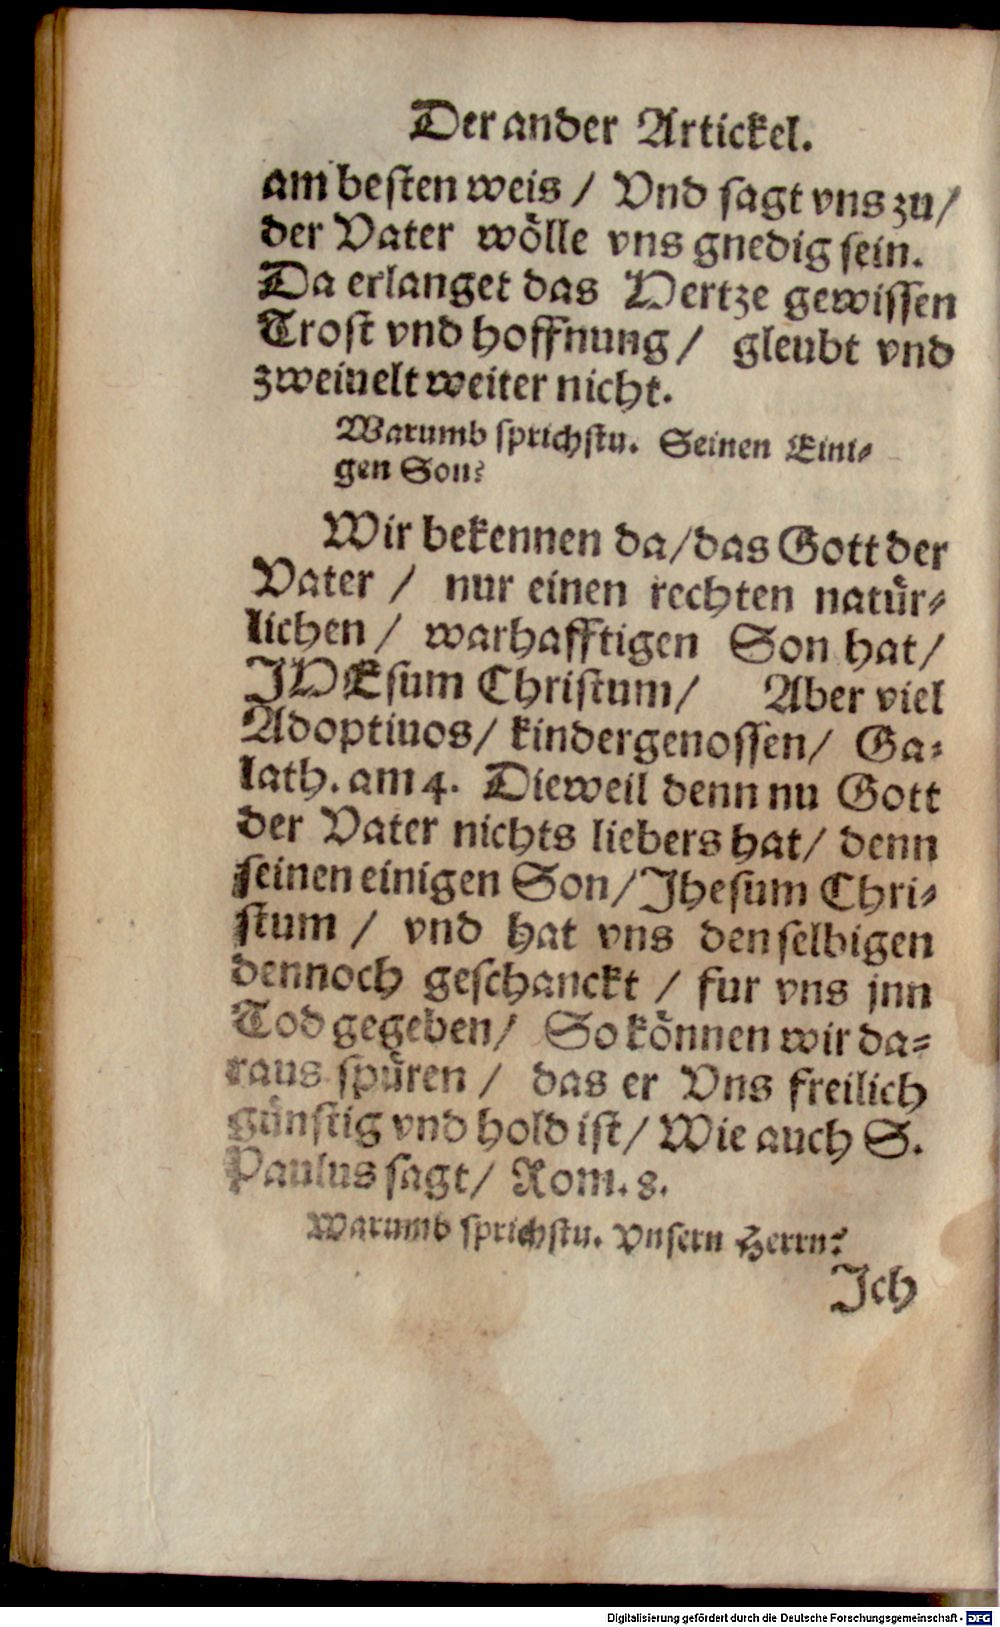 Der ander Artickel.
am besten weis / Vnd sagt vns zu /
der Vater wölle vns gnedig sein.
Da erlanget das Hertze gewissen
Trost vnd hoffnung / gleubt vnd
zweiuelt weiter nicht.
Warumb sprichstu. Seinen Eini-
gen Son?
Wir bekennen da / das Gott der
Vater / nur einen rechten natür-
lichen / warhafftigen Son hat /
JHEsum Christum / Aber viel
Adoptiuos / kindergenossen / Ga-
lath. am 4. Dieweil denn nu Gott
der Vater nichts liebers hat / denn
seinen einigen Son / Jhesum Chri-
stum / vnd hat vns denselbigen
dennoch geschanckt / fur vns jnn
Tod gegeben / So können wir da-
raus spüren / das er Vns freilich
günstig vnd hold ist / Wie auch S.
Paulus sagt / Rom. 8.
Warumb sprichstu. Vnsern Herrn?
Jch
Digitalisierung gefördert durch die Deutsche Forschungsgemeinschaft - DFG